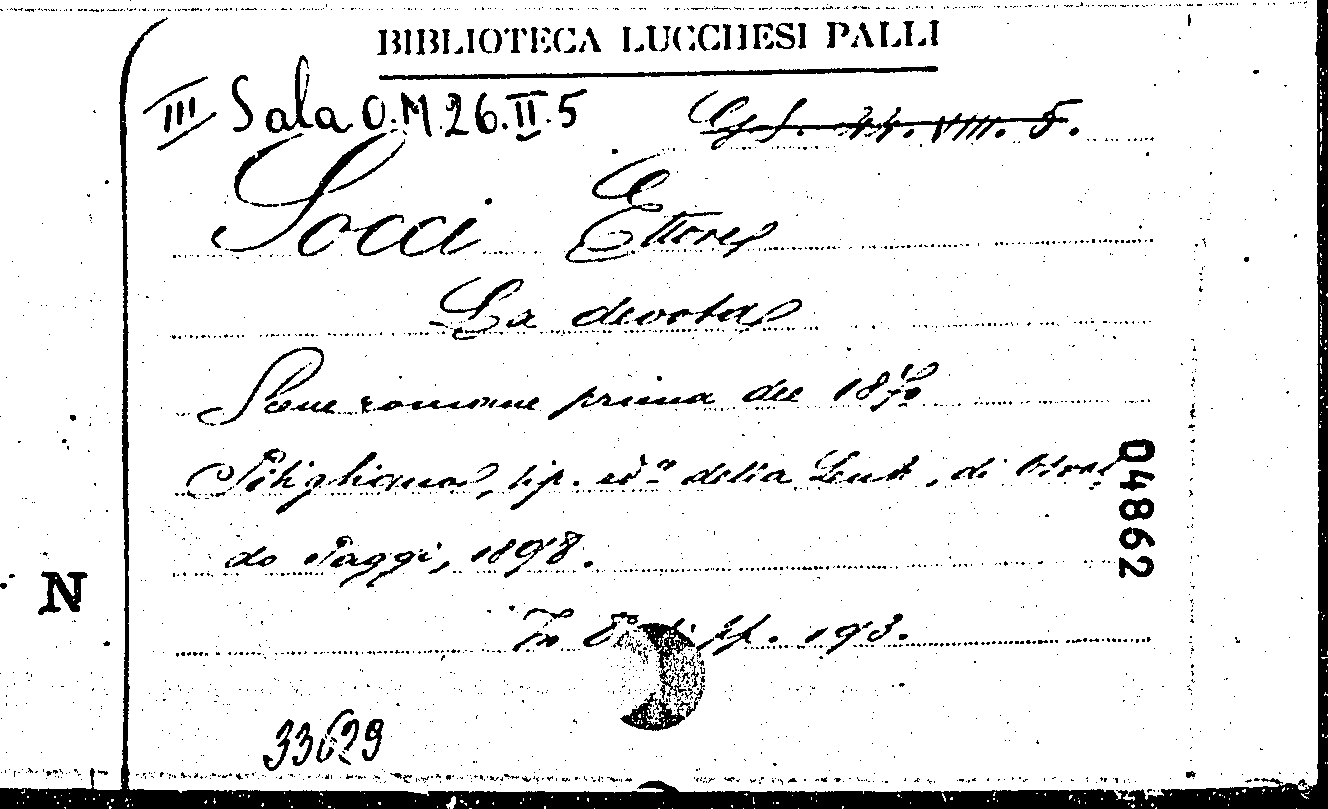 BIBLIOTECA LUCCHESI PALLI
III Sala O.M.26.II.5 44. VIII. 5.
Socci Ettore
La devota
Scene romane prima del 1870
Pitigliano, tip. ed.ª della Lente, di Osval
do Paggi, 1898.
In pp. 193.
04862
N
33629